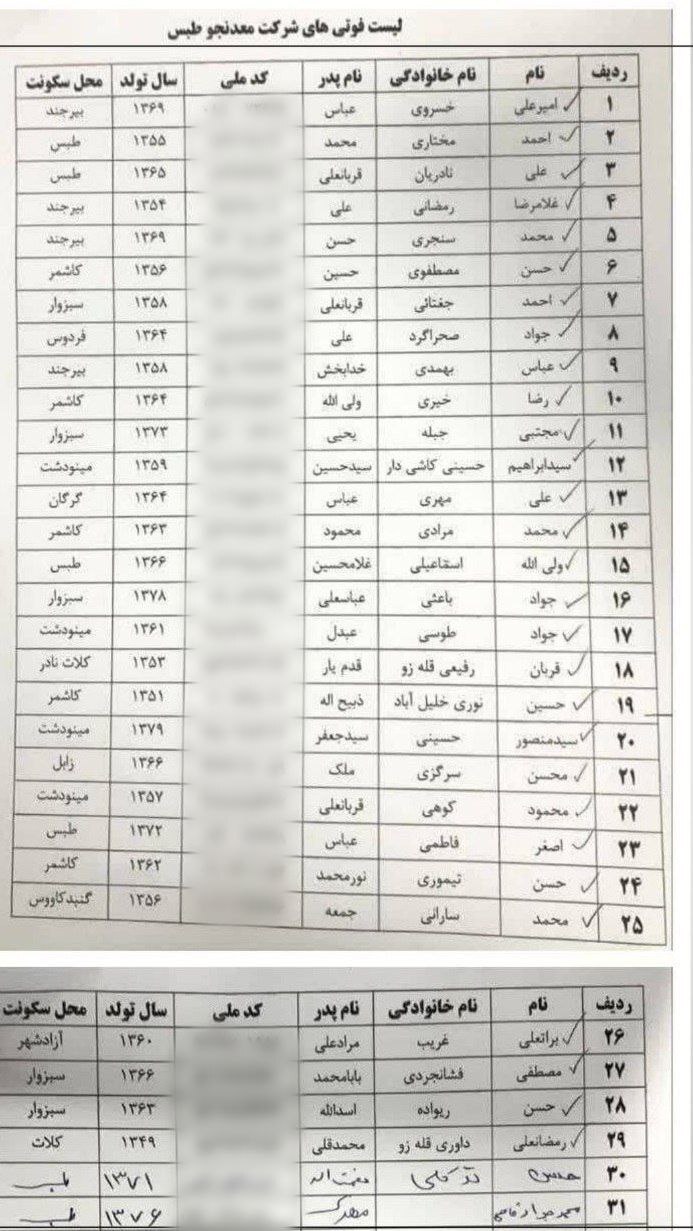 لیست فوتی های شرکت معدنجو طبس
ردیف نام نام خانوادگی نام پدر کد ملی سال تولد محل سکونت
۱ امیرعلی خسروی عباس ۱۳۶۹ بیرجند
۲ احمد مختاری محمد ۱۳۵۵ طبس
۳ علی نادریان قربانعلی ۱۳۶۵ طبس
۴ غلامرضا رمضانی علی ۱۳۵۴ بیرجند
۵ محمد سنجری حسن ۱۳۶۹ بیرجند
۶ حسن مصطفوی حسین ۱۳۵۶ کاشمر
۷ احمد جغتائی قربانعلی ۱۳۵۸ سبزوار
۸ جواد صحراگرد علی ۱۳۶۴ فردوس
۹ عباس بهمدی خدابخش ۱۳۵۸ بیرجند
۱۰ رضا خیری ولی الله ۱۳۶۴ کاشمر
۱۱ مجتبی جبله یحیی ۱۳۷۳ سبزوار
۱۲ سیدابراهیم حسینی کاشی دار سیدحسین ۱۳۵۹ مینودشت
۱۳ علی مهری عباس ۱۳۶۴ گرگان
۱۴ محمد مرادی محمود ۱۳۶۳ کاشمر
۱۵ ولی الله اسماعیلی غلامحسین ۱۳۶۶ طبس
۱۶ جواد باعثی عباسعلی ۱۳۷۸ سبزوار
۱۷ جواد طوسی عبدل ۱۳۶۱ مینودشت
۱۸ قربان رفیعی قله زو قدم یار ۱۳۵۳ کلات نادر
۱۹ حسین نوری خلیل آباد ذبیح اله ۱۳۵۱ کاشمر
۲۰ سیدمنصور حسینی سیدجعفر ۱۳۷۹ مینودشت
۲۱ محسن سرگزی ملک ۱۳۶۶ زابل
۲۲ محمود کوهی قربانعلی ۱۳۵۷ مینودشت
۲۳ اصغر فاطمی عباس ۱۳۷۲ طبس
۲۴ حسن تیموری نورمحمد ۱۳۶۲ کاشمر
۲۵ محمد سارانی جمعه ۱۳۵۶ گنبدکاووس
ردیف نام نام خانوادگی نام پدر کد ملی سال تولد محل سکونت
۲۶ براتعلی غریب مرادعلی ۱۳۶۰ آزادشهر
۲۷ مصطفی فشانجردی بابامحمد ۱۳۶۶ سبزوار
۲۸ حسن ریواده اسدالله ۱۳۶۳ سبزوار
۲۹ رمضانعلی داوری قله زو محمدقلی ۱۳۴۹ کلات
۳۰ ۱۳۷۱
۳۱ محمدجواد ۱۳۷۶